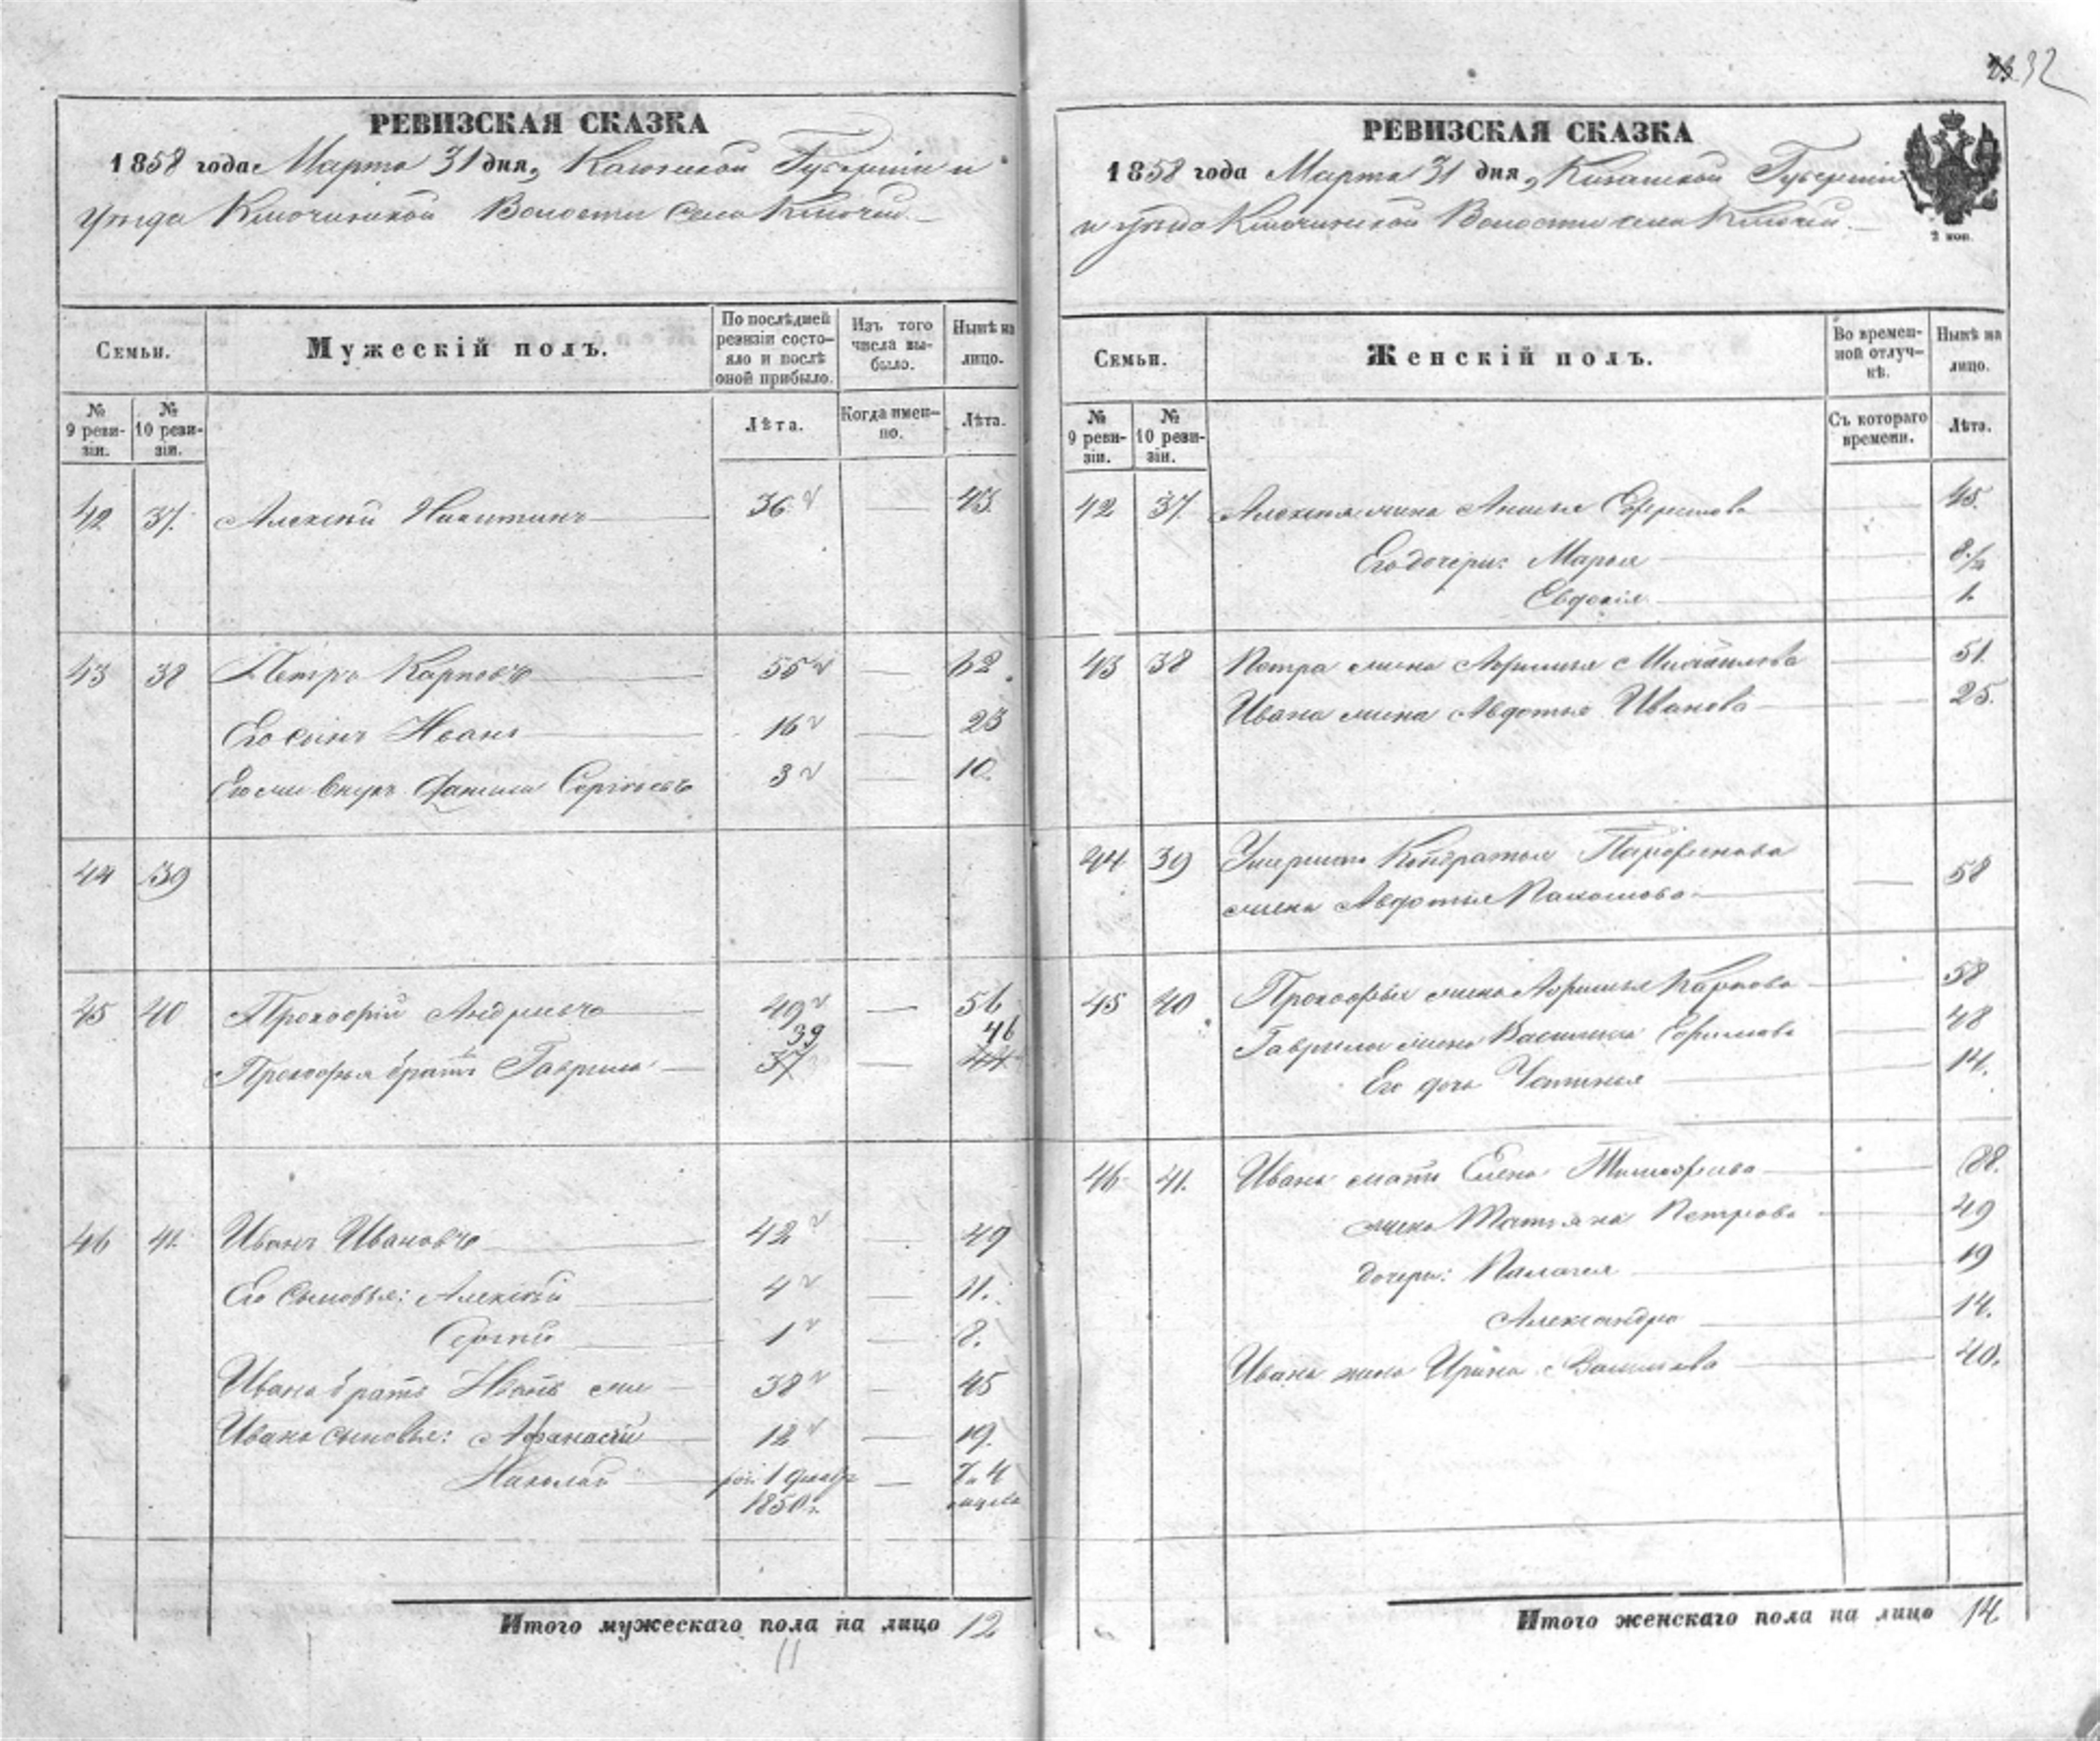 32
РЕВИЗСКАЯ СКАЗКА
1858 года Марта 31 дня, Казанской Губерніи и
уезда Ключинской Волости села Ключи
Семьи.
Мужескій полъ.
По послѣдней ревизіи состояло и послѣ оной прибыло.
Изъ того числа выбыло.
Нынѣ на лицо.
№ 9 ревизіи.
№ 10 ревизіи.
Лѣта.
Когда именно.
Лѣта.
42 37. Алексѣй Никитинъ 36 — 43.
43 38 Петръ Карповъ 55 — 62.
Его сынъ Иванъ 16 — 23
Его же внукъ Сергѣевъ 3 — 10.
44 39
45 40 Прокофій Андреевъ 49 — 56
39 46
Прокофья братъ Гаврила 37 — 44
46 41. Иванъ Ивановъ 42 — 49
Его сыновья: Алексѣй 4 — 11.
Сергѣй 1 — 8.
Ивана братъ Иванъ же 38 — 45
Ивана сыновья: Афанасій 12 — 19.
Николай 1 — 7 и 4
1850 г. месяца
Итого мужескаго пола на лицо 12
11
РЕВИЗСКАЯ СКАЗКА
1858 года Марта 31 дня, Казанской Губерніи
и уезда Ключинской Волости села Ключи
2 коп.
Семьи.
Женскій полъ.
Во временной отлучкѣ.
Нынѣ на лицо.
№ 9 ревизіи.
№ 10 ревизіи.
Съ котораго времени.
Лѣта.
42 37. Алексѣя жена Анисья Ефремова — 45.
Его дочери: Марья — 8.
Евдокія — 1.
43 38 Петра жена Афимья Михайлова — 51.
Ивана жена Авдотья Иванова — 25.
44 39 Умершаго Кондратья Парфенова
жена Авдотья Пахомова — 58
45 40 Прокофья жена Афимья Карпова — 58
Гаврилы жена Василиса Ефимова — 48
Его дочь Устинья — 14.
46 41. Ивана мать Елена Тимофеева — 88.
жена Татьяна Петрова — 49
дочери: Палагея — 19
Александра — 14.
Ивана жена Ирина Васильева — 40.
Итого женскаго пола на лицо 14.